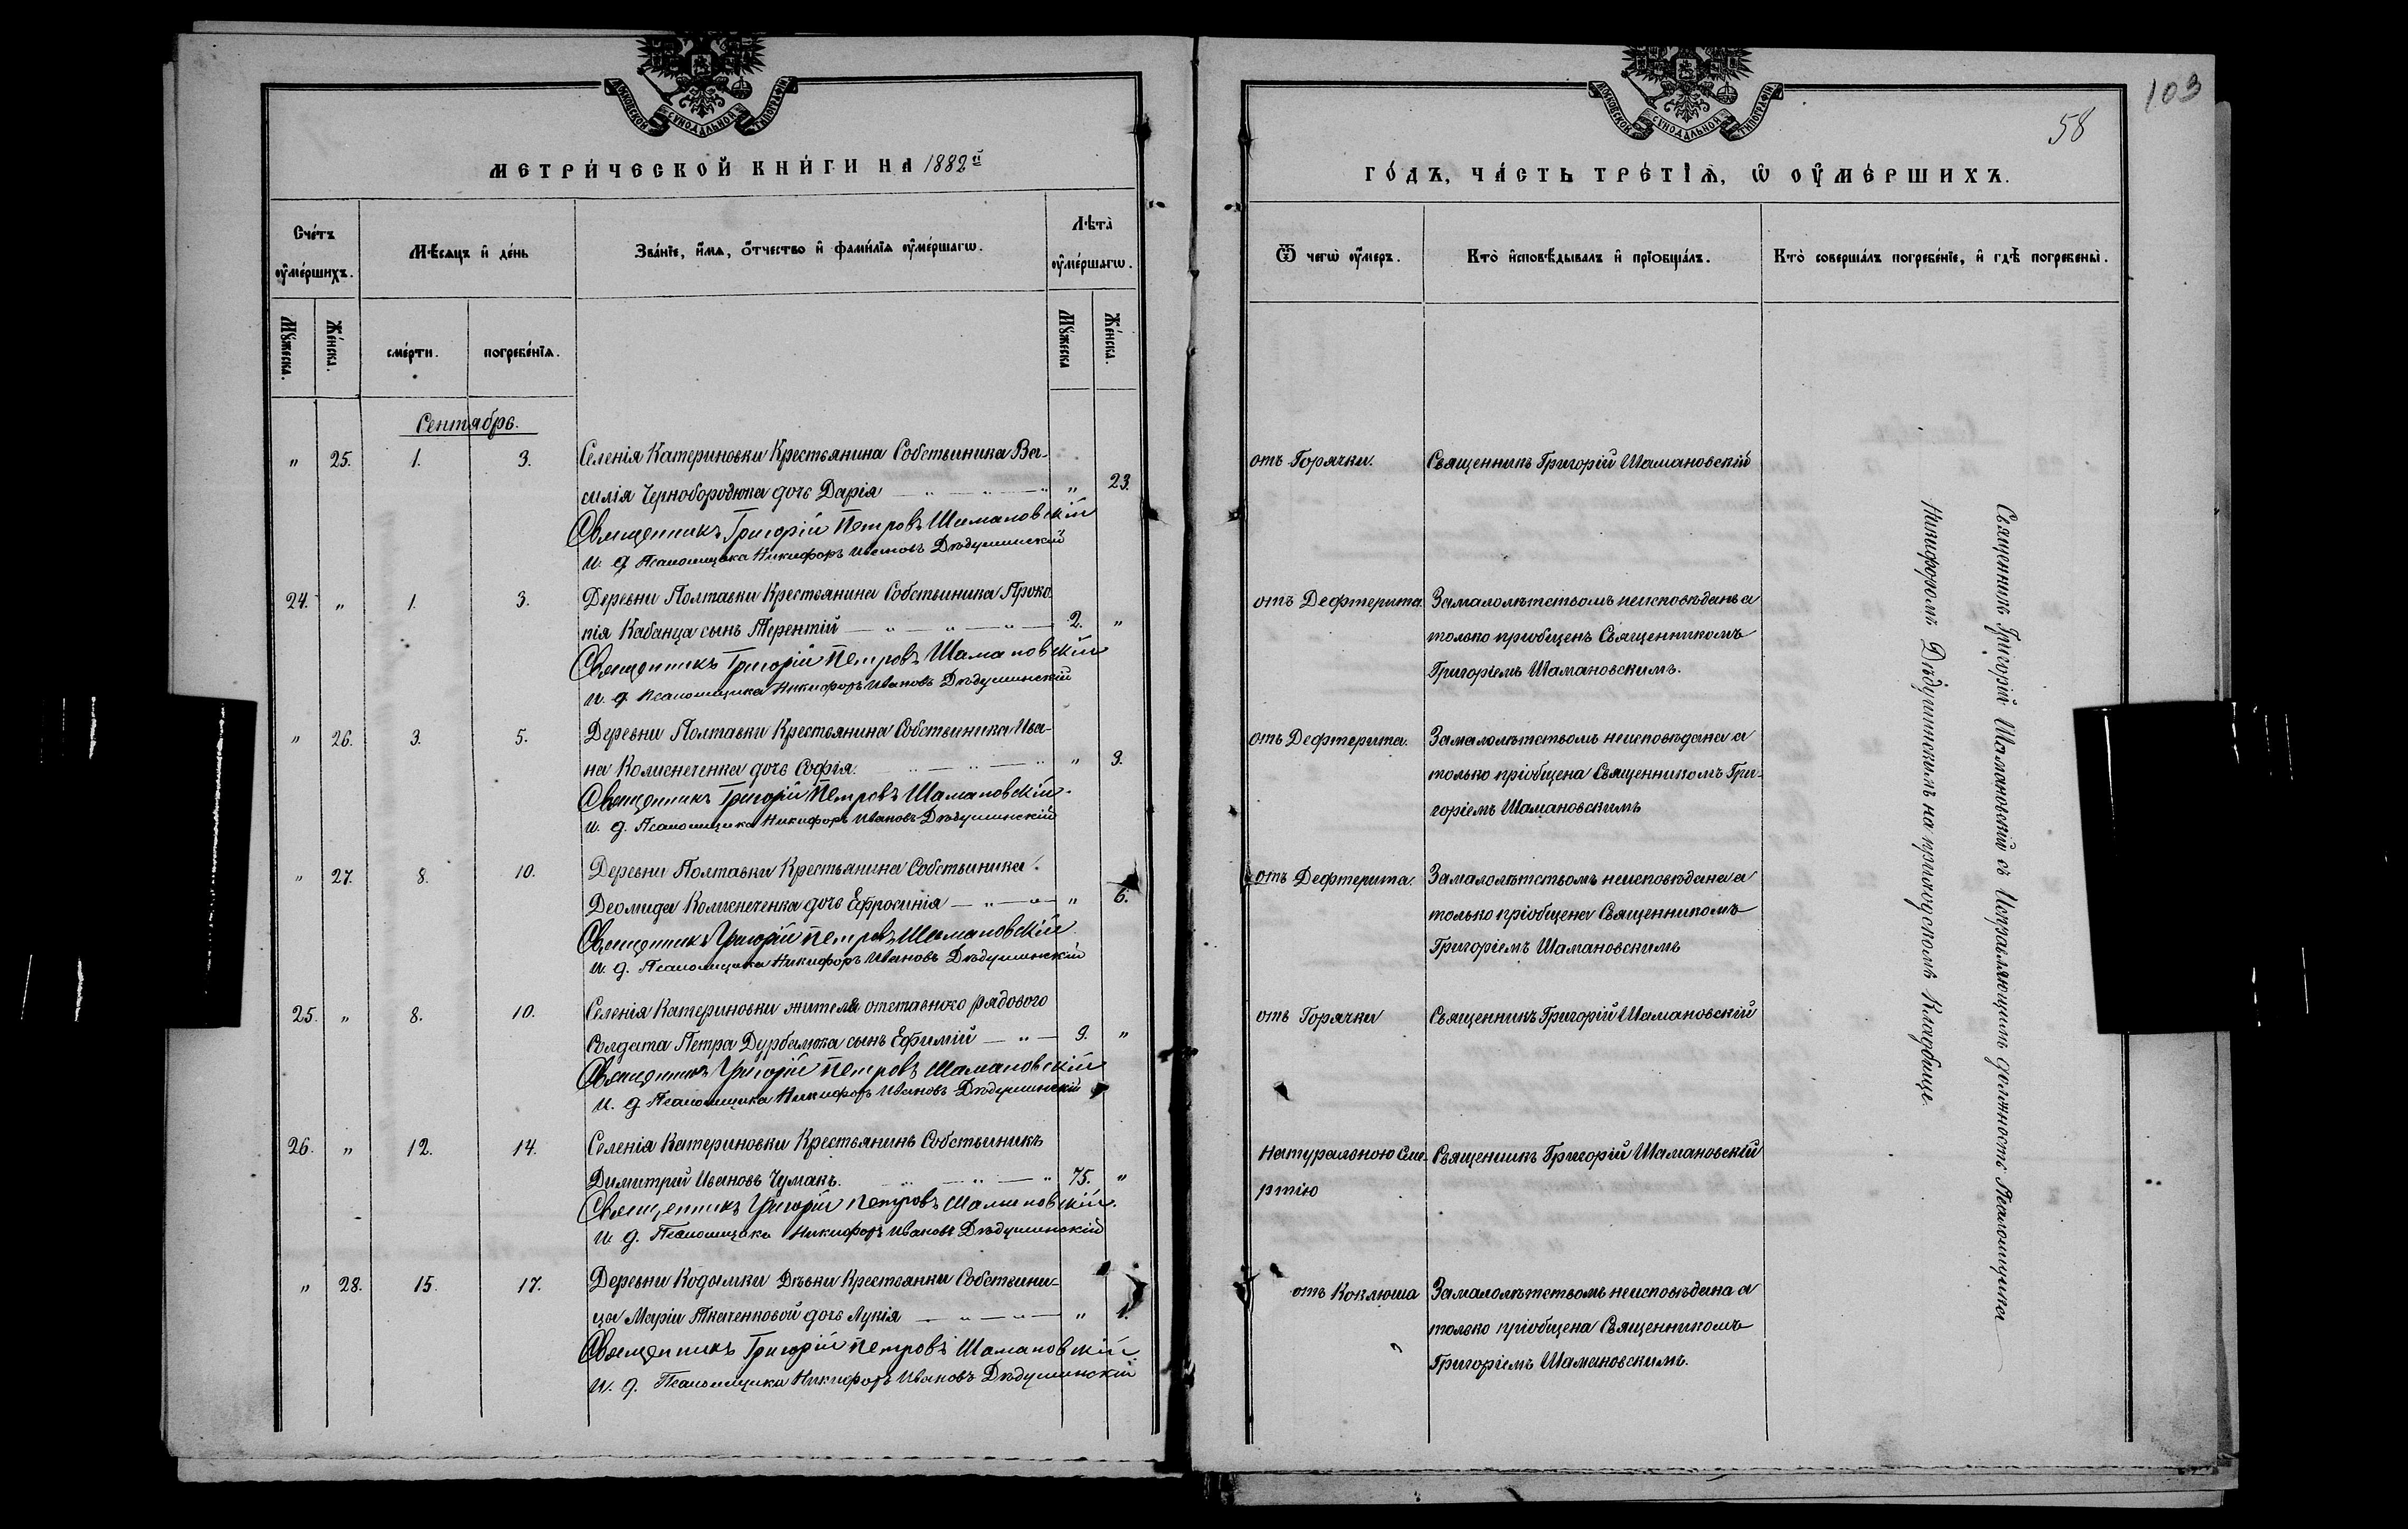 МОСКОВСКОЙ СѴНОДАЛЬНОЙ ТИПОГРАФІИ
МЕТРИ́ЧЕСКОЙ КНИ́ГИ НА 1882й
Сче́тъ ᲂу҆ме́ршихъ.
Мѣ́сяцъ и҆ де́нь
Зва́нїе, и҆́мя, ѻ҆́тчество и҆ фами́лїя ᲂу҆ме́ршагѡ.
Лѣ́та ᲂу҆ме́ршагѡ.
Мꙋ́жеска.
Же́нска.
сме́рти.
погребе́нїя.
Мꙋ́жеска
Же́нска.
Сентябрь.
" 25. 1. 3. Селенія Катериновки Крестьянина Собственника Ва-
силія Чернобородюка дочь Дарія " 23.
Священникъ Григорій Петровъ Шамановскій
И. д. Псаломщика Никифоръ Ивановъ Дѣдушинскій
24. " 1. 3. Деревни Полтавки Крестьянина Собственника Проко
пія Кабанца сынъ Терентій 2. "
Священникъ Григорій Петровъ Шамановскій
И. д. Псаломщика Никифоръ Ивановъ Дѣдушинскій
" 26. 3. 5. Деревни Полтавки Крестьянина Собственника Ива-
на Колисниченка дочь Софія. " 3.
Священникъ Григорій Петровъ Шамановскій.
И. д. Псаломщика Никифоръ Ивановъ Дѣдушинскій
" 27. 8. 10. Деревни Полтавки Крестьянина Собственника
Деомида Колисниченка дочь Ефросинія " 6.
Священникъ Григорій Петровъ Шамановскій
И. д. Псаломщика Никифоръ Ивановъ Дѣдушинскій
25. " 8. 10. Селенія Катериновки жителя отставнаго рядового
Солдата Петра сынъ Ефимій 9. "
Священникъ Григорій Петровъ Шамановскій
И. д. Псаломщика Никифоръ Ивановъ Дѣдушинскій
26. " 12. 14. Селенія Катериновки Крестьянинъ Собственникъ
Димитрий Ивановъ Чумакъ. 75. "
Священникъ Григорій Петровъ Шамановскій.
И. д. Псаломщика Никифоръ Ивановъ Дѣдушинскій
" 28. 15. 17. Деревни Кодымки Дѣвки Крестьянки Собственни-
цы Маріи Ткаченковой дочь Лукія " 1.
Священникъ Григорій Петровъ Шамановскій
И. д. Псаломщика Никифоръ Ивановъ Дѣдушинскій
103
58
МОСКОВСКОЙ СѴНОДАЛЬНОЙ ТИПОГРАФІИ
ГО́ДЪ, ЧА́СТЬ ТРЕ́ТЇѦ, Ѡ҆ ОУ҆МЕ́РШИХЪ.
Ѿ чегѡ̀ ᲂу҆́меръ.
Кто̀ и҆сповѣ́дывалъ и҆ прїобща́лъ.
Кто̀ соверша́лъ погребе́нїе, и҆ гдѣ̀ погребены̀.
отъ Горячки. Священникъ Григорій Шамановскій
отъ Дефтерита. Замалолѣтствомъ неисповѣданъ а
только приобщенъ Священникомъ
Григоріемъ Шамановскимъ.
отъ Дефтерита. Замалолѣтствомъ неисповѣдана а
только пріобщена Священникомъ Гри-
горіемъ Шамановскимъ
отъ Дефтерита. Замалолѣтствомъ неисповѣдана а
только пріобщена Священникомъ
Григоріемъ Шамановскимъ
отъ Горячки Священникъ Григорій Шамановскій
Натуральною Сме- Священникъ Григорій Шамановскій
ртію
отъ Коклюша Замалолѣтствомъ неисповѣдана а
только пріобщена Священникомъ
Григоріемъ Шамановскимъ.
Священникъ Григорій Шамановскій съ Исправляющимъ должность Псаломщика
Никифоромъ Дѣдушинскимъ на приходскомъ Кладбище.